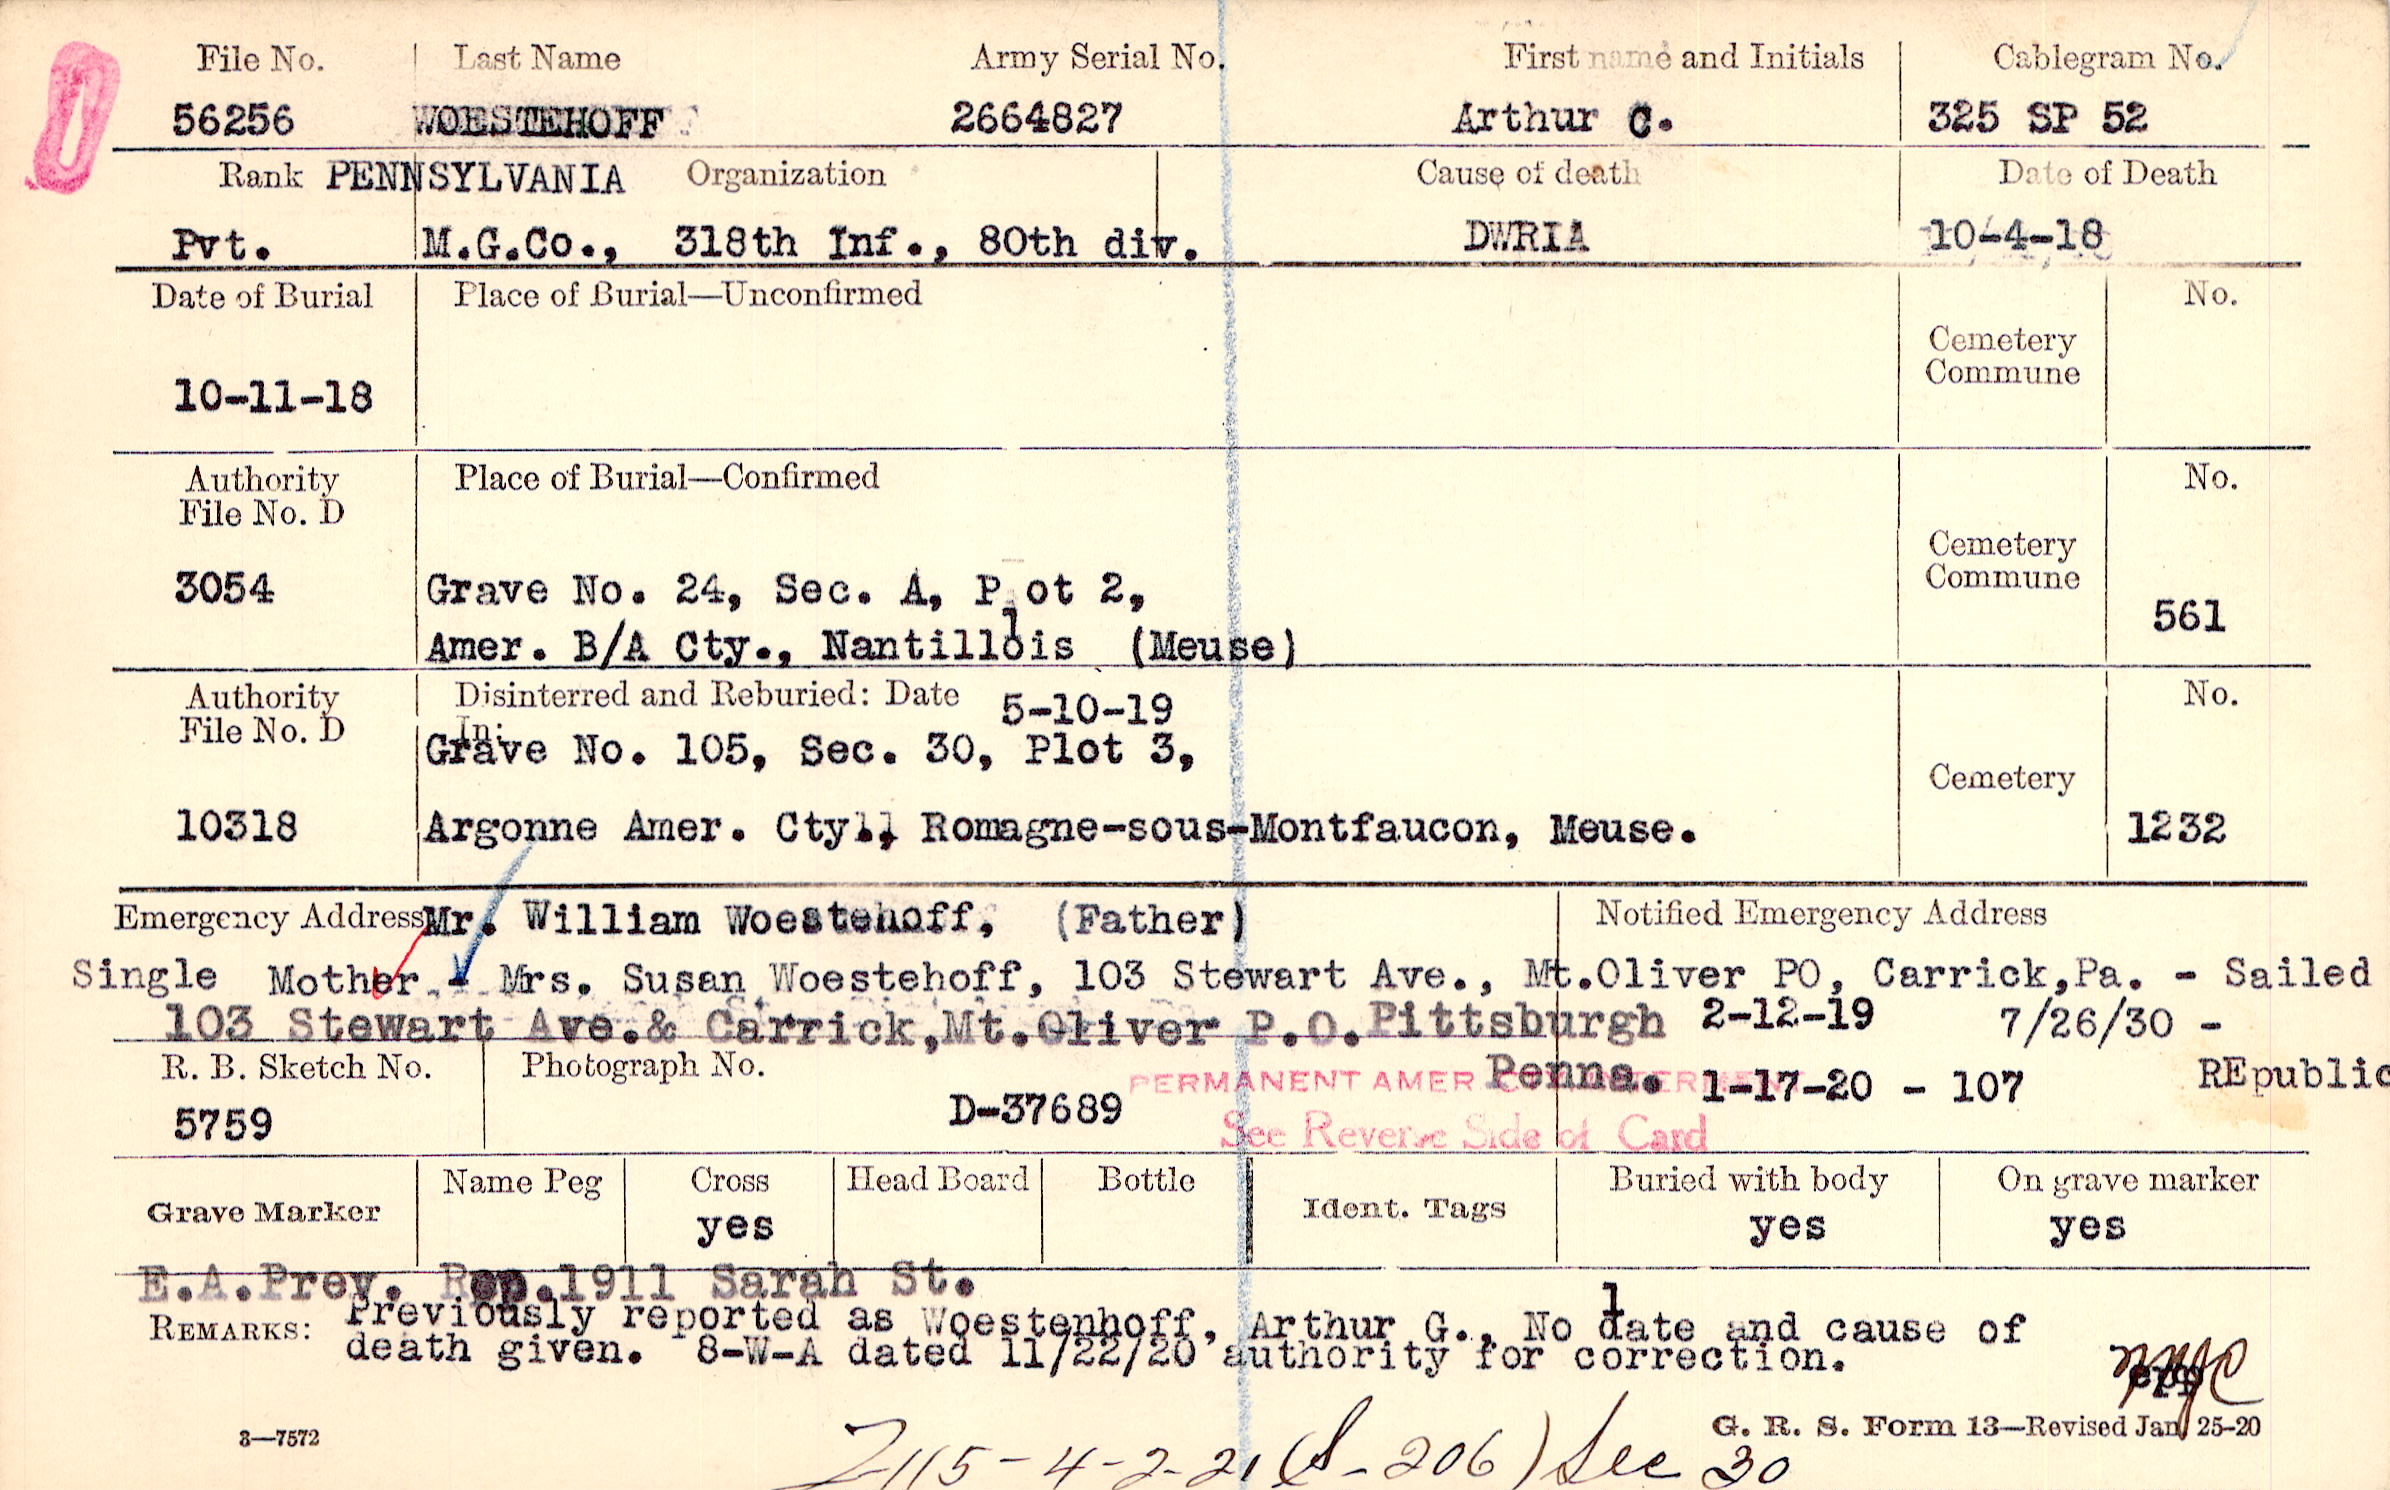 File No. Last Name Army Serial No. First name and Initials Cablegram No.
56256 WOESTEHOFF 2664827 Arthur C. 325 SP 52
Rank PENNSYLVANIA Organization Cause of death Date of Death
Pvt. M.G.Co., 318th Inf., 80th div. DWRIA 10-4-18
Date of Burial Place of Burial—Unconfirmed No.
Cemetery
Commune
10-11-18
Authority Place of Burial—Confirmed No.
File No. D
Cemetery
Commune
3054 Grave No. 24, Sec. A, Plot 2, 561
Amer. B/A Cty., Nantillois (Meuse)
Authority Disinterred and Reburied: Date 5-10-19 No.
File No. D In:
Grave No. 105, Sec. 30, Plot 3,
Cemetery
10318 Argonne Amer. Cty., Romagne-sous-Montfaucon, Meuse. 1232
Emergency Address Mr. William Woestehoff, (Father) Notified Emergency Address
Single Mother - Mrs. Susan Woestehoff, 103 Stewart Ave., Mt.Oliver PO, Carrick,Pa. - Sailed
103 Stewart Ave.& Carrick,Mt.Oliver P.O. Pittsburgh 2-12-19 7/26/30 -
R. B. Sketch No. Photograph No. Penna. 1-17-20 - 107 REpublic
PERMANENT AMER
5759 D-37689
See Reverse Side of Card
Grave Marker Name Peg Cross Head Board Bottle Ident. Tags Buried with body On grave marker
yes yes yes
E.A.Prev. Rep.1911 Sarah St.
REMARKS: Previously reported as Woestenhoff, Arthur G., No date and cause of
death given. 8-W-A dated 11/22/20 authority for correction.
3—7572
G. R. S. Form 13—Revised Jan 25-20
2115-4-2-21 (S-206) Sec 30